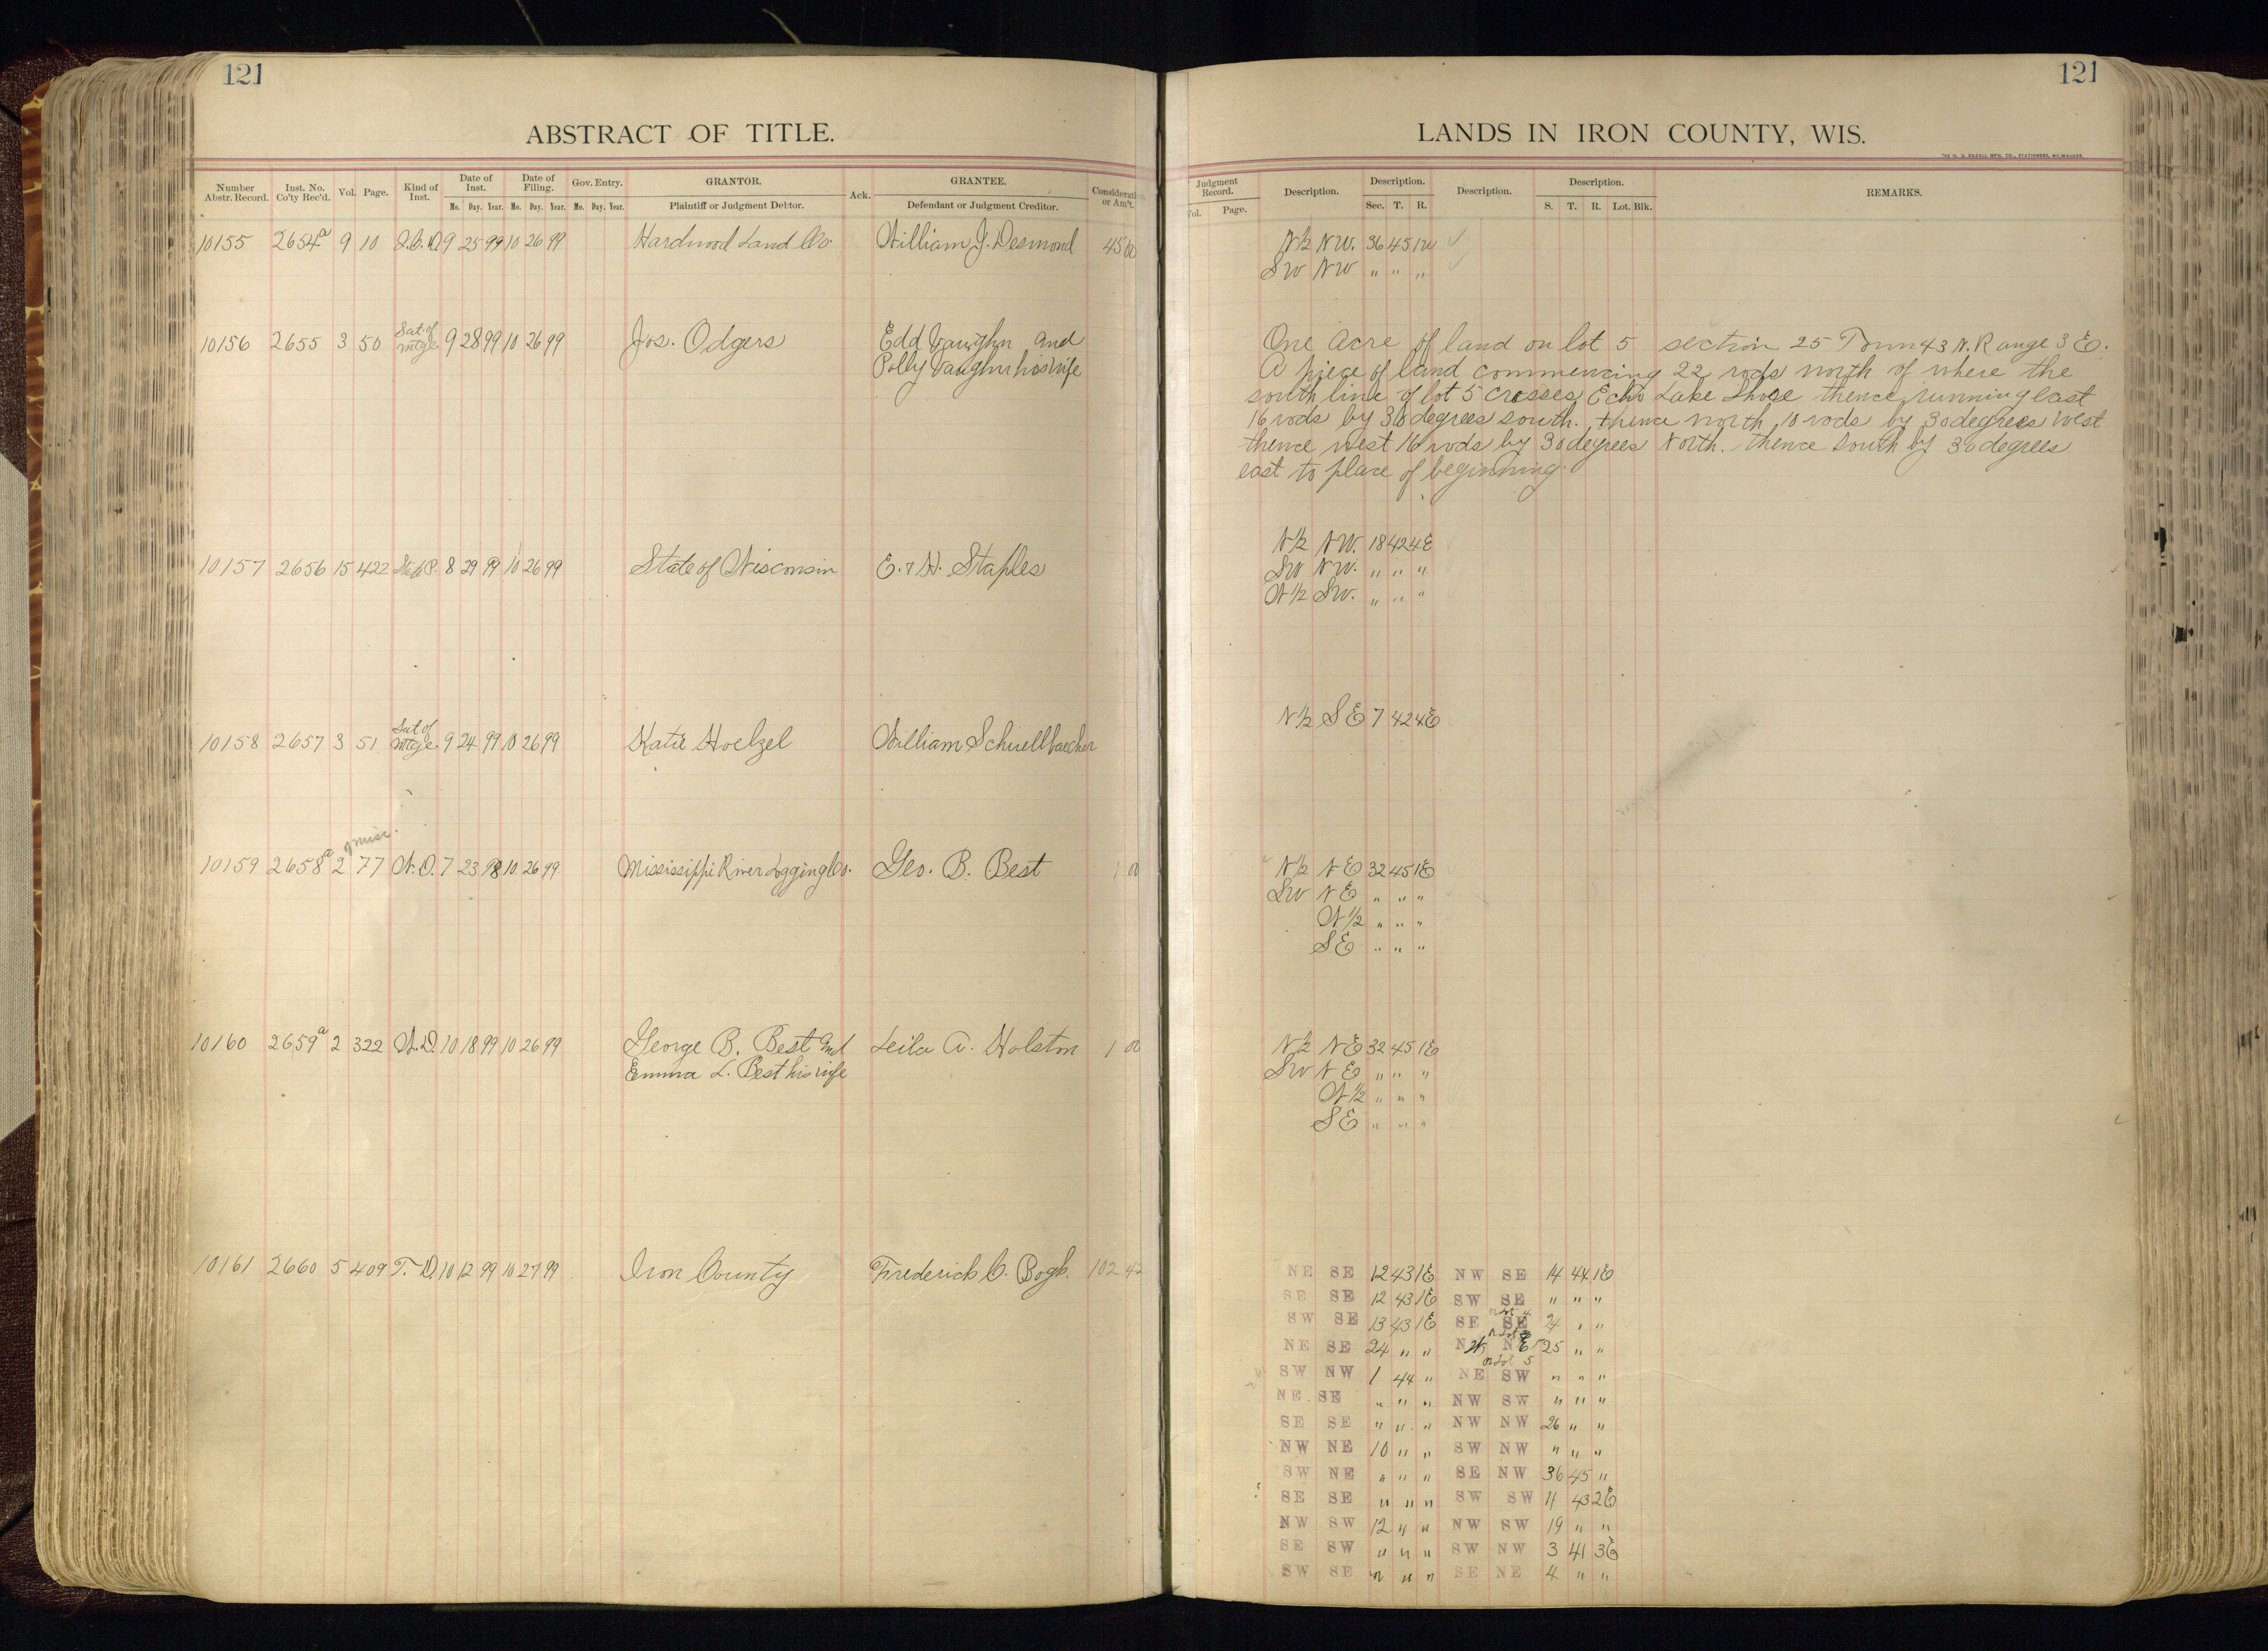 121
ABSTRACT OF TITLE.
Number Abstr. Record. Inst. No. Co'ty Rec'd. Vol. Page. Kind of Inst. Date of Inst. Mo. Day. Year. Date of Filing. Mo. Day. Year. Gov. Entry. Mo. Day. Year. GRANTOR. Plaintiff or Judgment Debtor. Ack. GRANTEE. Defendant or Judgment Creditor. Considerati or Am't.
10155 2654a 9 10 9 25 99 10 26 99 Hardwood Land Co. William J. Desmond 45 00
10156 2655 3 50 Sat. of Mtge 9 28 99 10 26 99 Jos. Odgers Edd Vaughn and
Polly Vaughn his wife
10157 2656 15 422 State P. 8 29 99 10 26 99 State of Wisconsin E. & H. Staples
10158 2657 3 51 Sat of Mtge 9 24 99 10 26 99 Katie Hoelzel William Schuellbaecher
misc.
10159 2658a 2 77 W.D. 7 23 98 10 26 99 Mississippi River Logging Co. Geo. B. Best 1 00
10160 2659a 2 322 W.D. 10 18 99 10 26 99 George B. Best and Leila A. Holston 1 00
Emma L. Best his wife
10161 2660 5 409 T.D. 10 12 99 10 27 99 Iron County Frederick C. Bogk. 102 42
121
LANDS IN IRON COUNTY, WIS.
THE H. G. RAZALL MFG. CO., STATIONERS, MILWAUKEE.
Judgment Record. Vol. Page. Description. Description. Sec. T. R. Description. Description. S. T. R. Lot. Blk. REMARKS.
N½ NW. 36 45 1W
SW NW " " "
One acre of land on lot 5 section 25 Town 43 N. Range 3 E.
A piece of land commencing 22 rods north of where the
south line of lot 5 crosses Echo Lake Shore thence running east
16 rods by 30 degrees south. thence north 10 rods by 30 degrees west
thence west 16 rods by 30 degrees North. thence south by 30 degrees
east to place of beginning.
N½ NW. 18 42 4E
SW NW. " " "
W½ SW. " " "
N½ SE 7 42 4E
N½ NE 32 45 1E
SW NE " " "
W½ " " "
SE " " "
N½ NE 32 45 1E
SW NE " " "
W½ " " "
SE " " "
NE SE 12 43 1E NW SE 14 44 1E
SE SE 12 43 1E SW SE " " "
SW SE 13 43 1E SE SE 24 " "
NE SE 24 " " 25 " "
SW NW 1 44 " NE SW " " "
NE SE " " " NW SW " " "
SE SE " " " NW NW 26 " "
NW NE 10 " " SW NW " " "
SW NE " " " SE NW 36 45 "
SE SE " " " SW SW 11 43 2E
NW SW 12 " " NW SW 19 " "
SE SW " " " SW NW 3 41 3E
SW SE " " " SE NE 4 " "